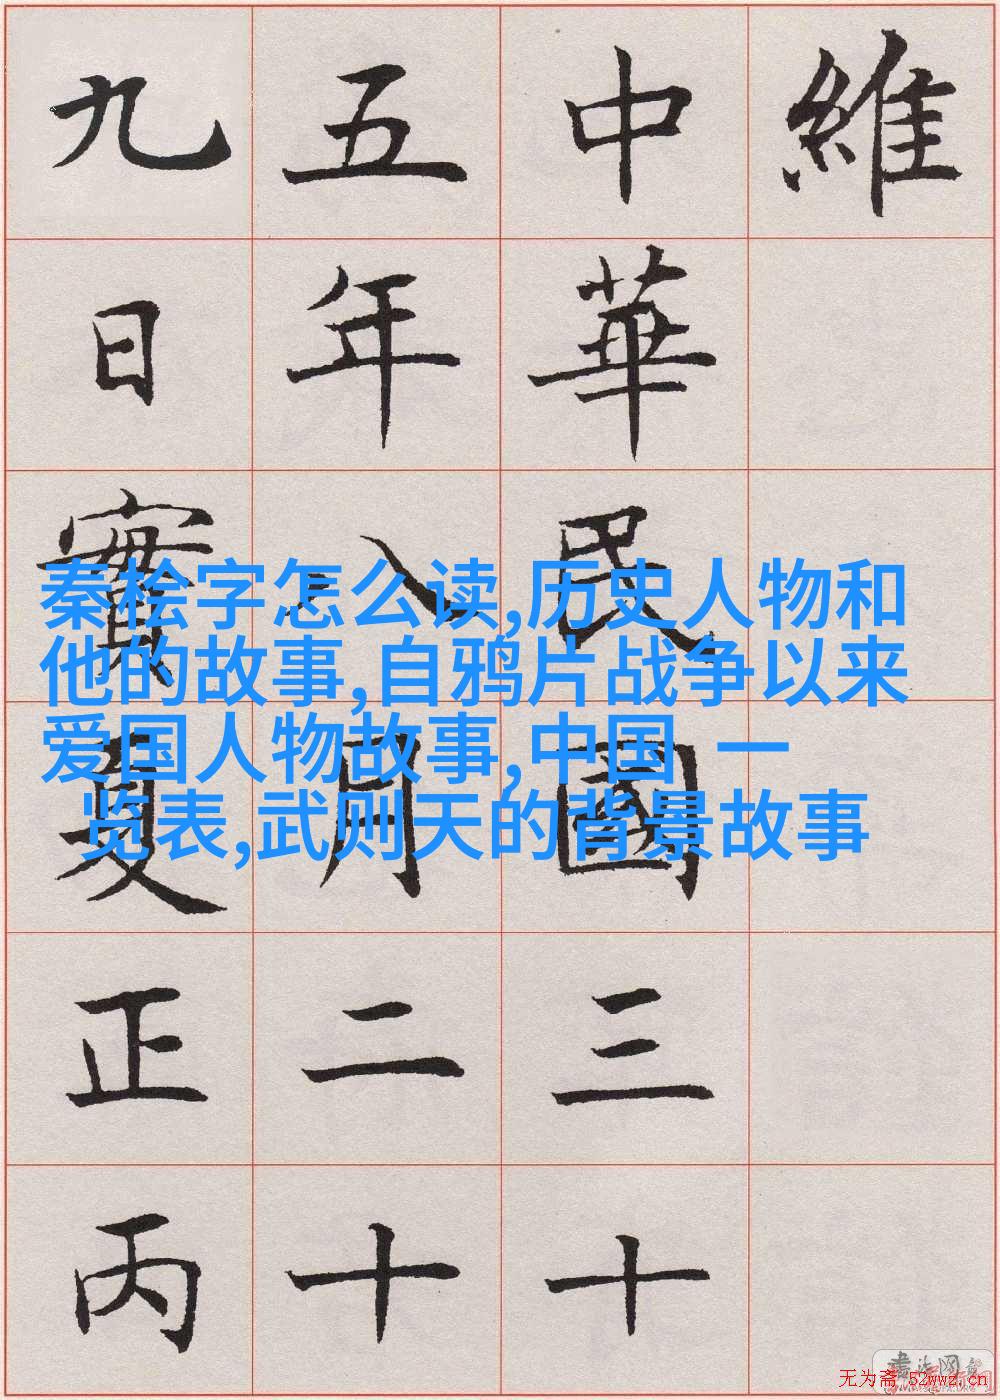 維
中華民國三十
五年八月二十
九日實夏正丙
秦桧字怎么读,历史人物和
他的故事,自鸦片战争以来
爱国人物故事,中国 一
览表,武则天的背景故事
无为斋 52wwz.cn